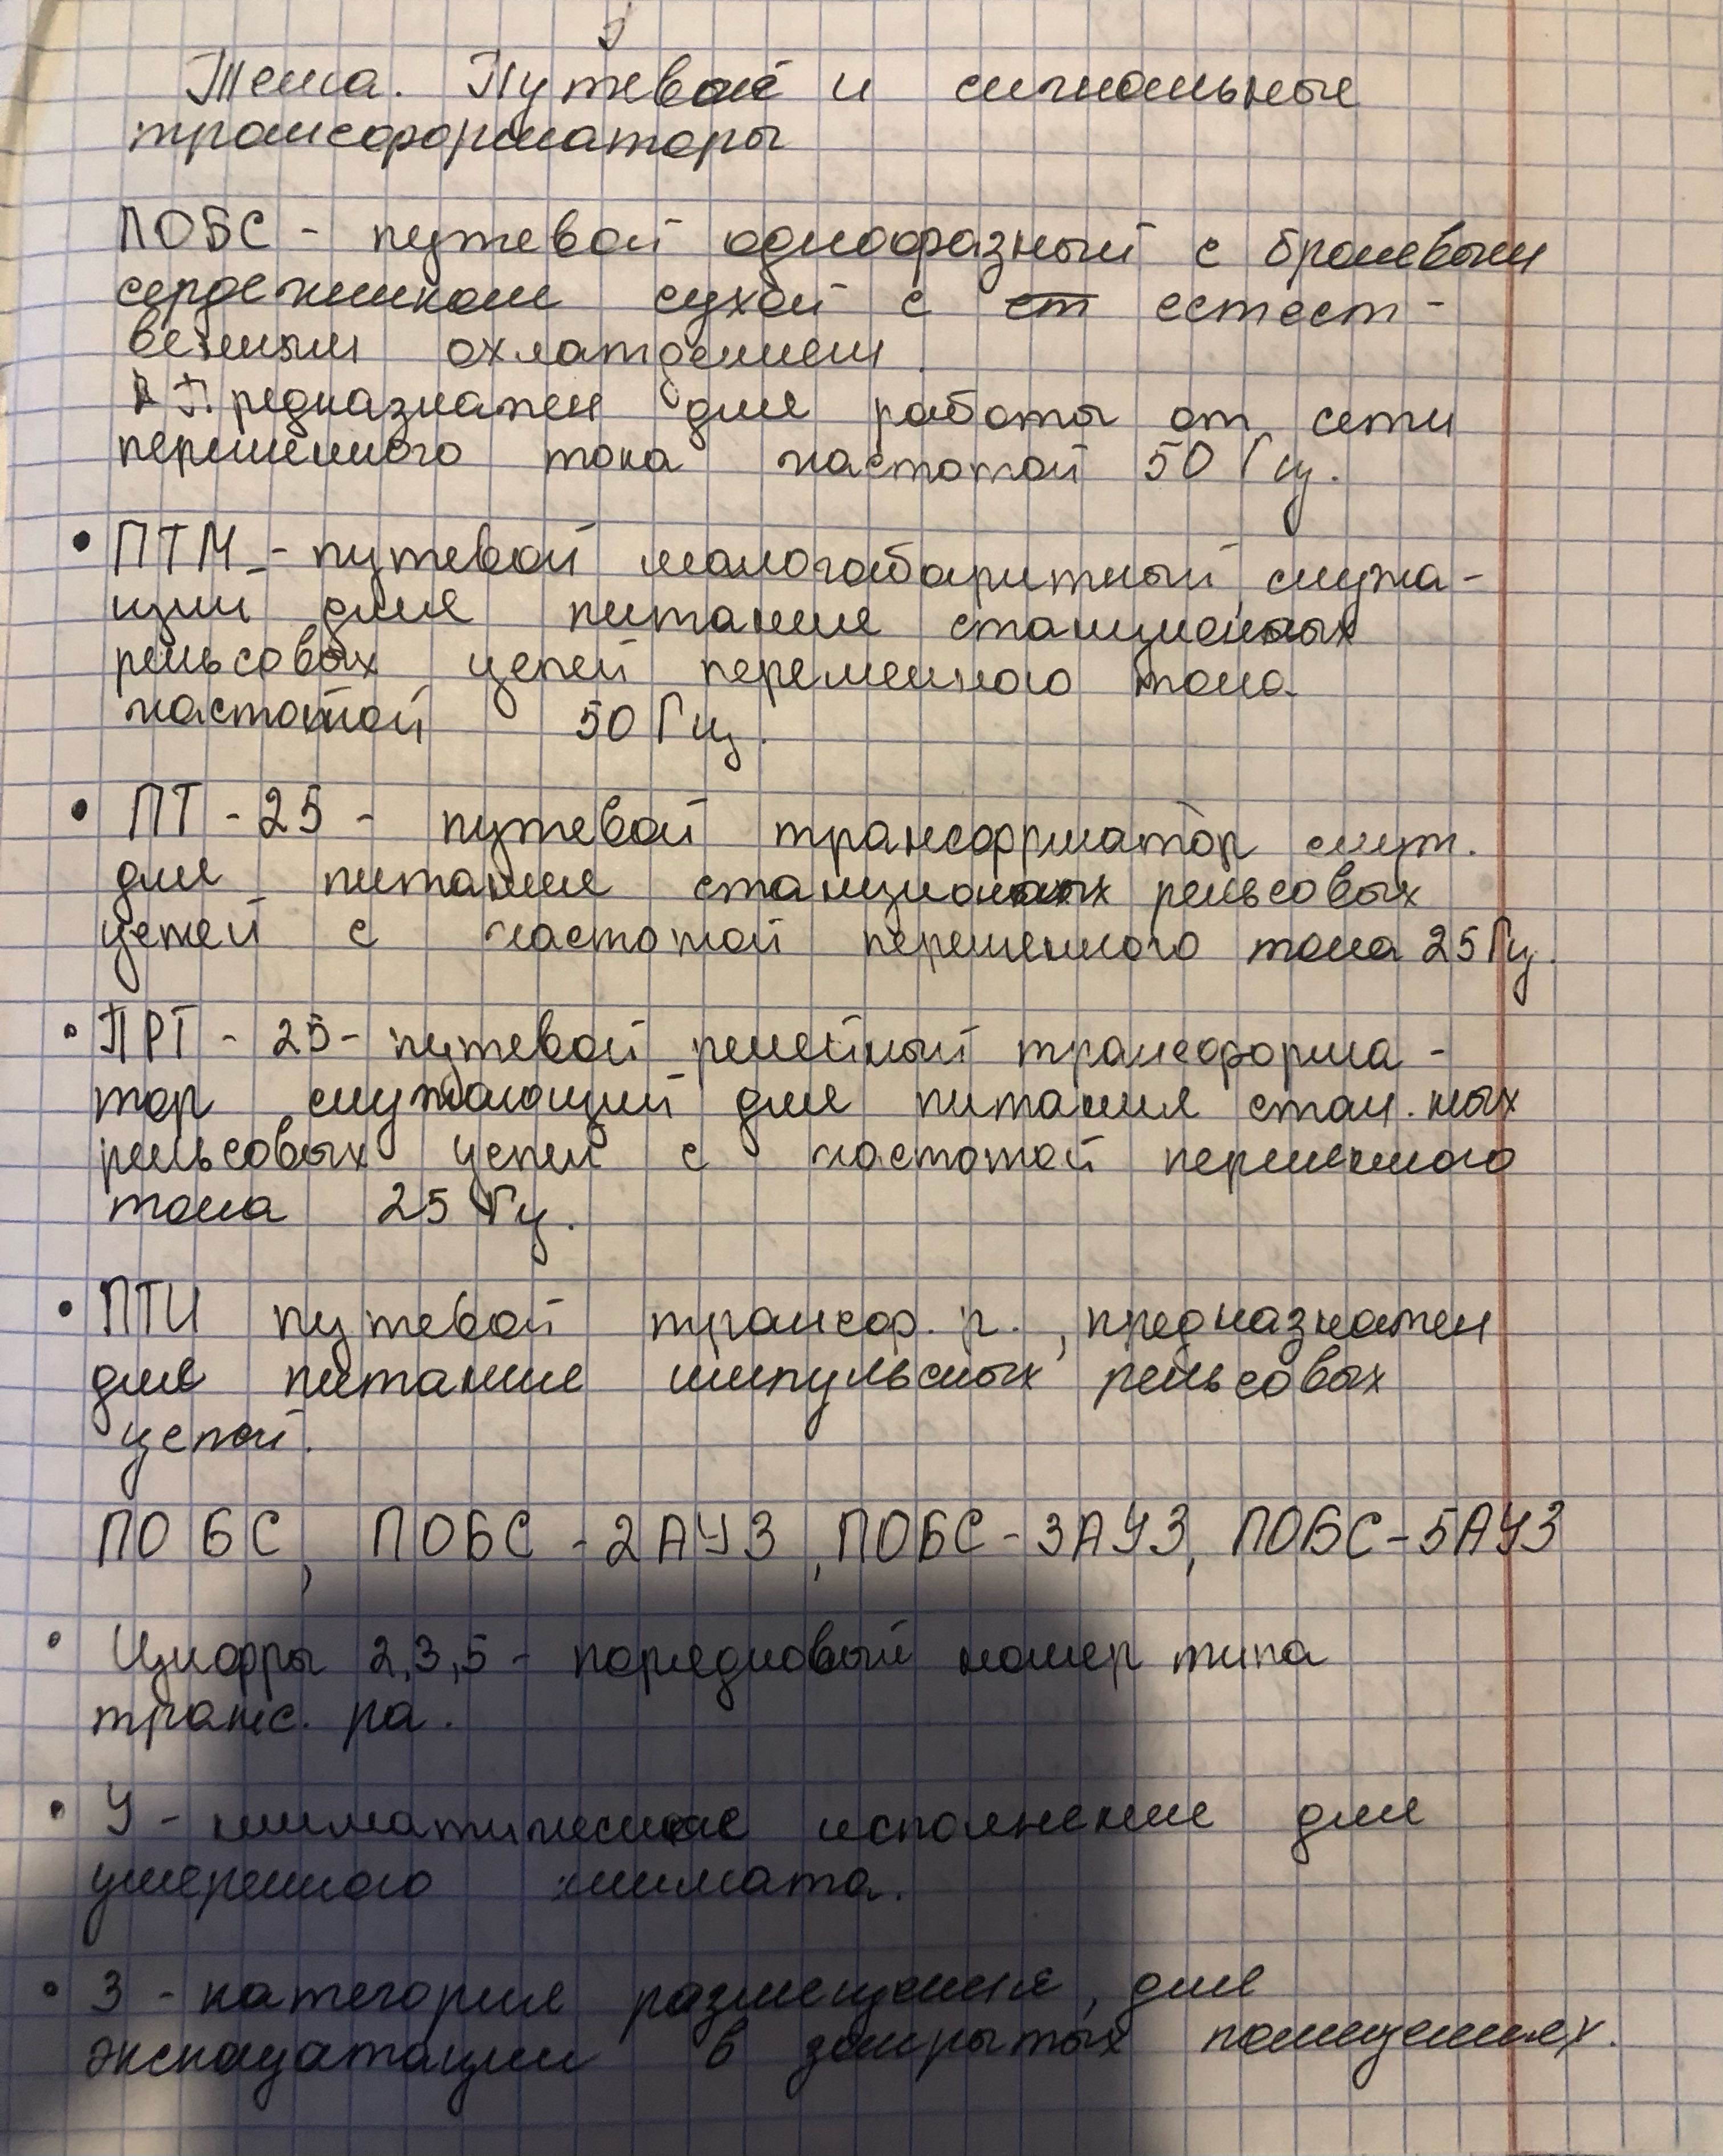 Тема. Путевые и сигнальные
трансформаторы
ПОБС - путевой однофазный с броневым
сердечником сухой с ст естест-
венным охлаждением.
Предназначен для работы от сети
переменного тока частотой 50 Гц.
• ПТМ - путевой малогабаритный, служа-
щий для питания станционых
рельсовых цепей переменного тока
частотой 50 Гц.
• ПТ - 25 - путевой трансформатор служ.
для питания станционых рельсовых
цепей с частотой переменного тока 25 Гц.
• ПРТ - 25 - путевой релейный трансформа-
тор служающий для питания стан. ных
рельсовых цепей с частотой переменного
тока 25 Гц.
• ПТИ путевой трансф. р., предназначен
для питания импульсных рельсовых
цепей.
ПОБС, ПОБС - 2АУ3, ПОБС - 3АУ3, ПОБС - 5АУ3
• Цифры 2,3,5 - порядковый номер типа
транс. ра.
• У - климатическое исполнение для
умеренного климата.
• 3 - категория размещения, для
экспоцатации в закрытых помещениях.